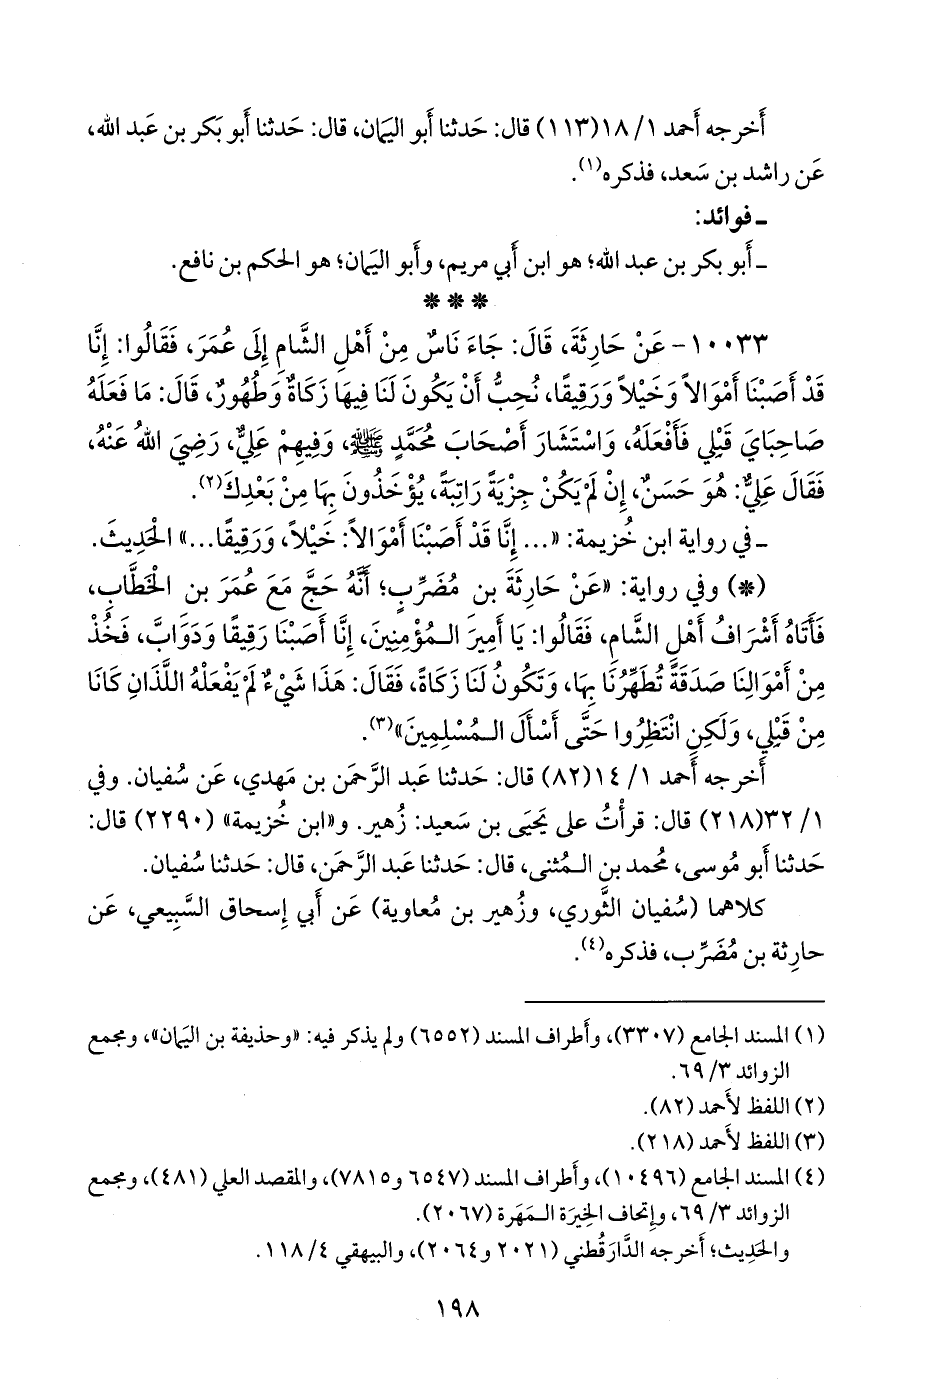 أَخرجه أَحمد ١/ ١٨(١١٣) قال: حَدثنا أَبو اليَمان، قال: حَدثنا أَبو بَكر بن عَبد الله،
عَن راشد بن سَعد، فذكره(١).
ـ فوائد:
ـ أَبو بكر بن عبد الله؛ هو ابن أَبي مريم، وأَبو اليمان؛ هو الحكم بن نافع.
* * *
١٠٠٣٣- عَنْ حَارِثَةَ، قَالَ: جَاءَ نَاسٌ مِنْ أَهْلِ الشَّامِ إِلَى عُمَرَ، فَقَالُوا: إِنَّا
قَدْ أَصَبْنَا أَمْوَالاً وَخَيْلاً وَرَقِيقًا، نُحِبُّ أَنْ يَكُونَ لَنَا فِيهَا زَكَاةٌ وَطُهُورٌ، قَالَ: مَا فَعَلَهُ
صَاحِبَايَ قَبْلِي فَأَفْعَلَهُ، وَاسْتَشَارَ أَصْحَابَ مُحَمَّدٍ ﷺ، وَفِيهِمْ عَلِيٌّ، رَضِيَ اللهُ عَنْهُ،
فَقَالَ عَلِيٌّ: هُوَ حَسَنٌ، إِنْ لَمْ يَكُنْ جِزْيَةً رَاتِبَةً، يُؤْخَذُونَ بِهَا مِنْ بَعْدِكَ(٢).
ـ في رواية ابن خُزيمة: «... إِنَّا قَدْ أَصَبْنَا أَمْوَالاً: خَيْلاً، وَرَقِيقًا...» الحَدِيثَ.
(*) وفي رواية: «عَنْ حَارِثَةَ بن مُضَرِّبٍ؛ أَنَّهُ حَجَّ مَعَ عُمَرَ بن الْخَطَّابِ،
فَأَتَاهُ أَشْرَافُ أَهْلِ الشَّامِ، فَقَالُوا: يَا أَمِيرَ الـمُؤْمِنِينَ، إِنَّا أَصَبْنَا رَقِيقًا وَدَوَابَّ، فَخُذْ
مِنْ أَمْوَالِنَا صَدَقَةً تُطَهِّرُنَا بِهَا، وَتَكُونُ لَنَا زَكَاةً، فَقَالَ: هَذَا شَيْءٌ لَمْ يَفْعَلْهُ اللَّذَانِ كَانَا
مِنْ قَبْلِي، وَلَكِنِ انْتَظِرُوا حَتَّى أَسْأَلَ الـمُسْلِمِينَ»(٣).
أَخرجه أَحمد ١/ ١٤(٨٢) قال: حَدثنا عَبد الرَّحمَن بن مَهدي، عَن سُفيان. وفي
١/ ٣٢(٢١٨) قال: قرأْتُ على يَحيَى بن سَعيد: زُهير. و«ابن خُزيمة» (٢٢٩٠) قال:
حَدثنا أَبو مُوسى، مُحمد بن الـمُثنى، قال: حَدثنا عَبد الرَّحمَن، قال: حَدثنا سُفيان.
كلاهما (سُفيان الثَّوري، وزُهير بن مُعاوية) عَن أَبي إِسحاق السَّبِيعي، عَن
حارِثة بن مُضَرِّب، فذكره(٤).
(١) المسند الجامع (٣٣٠٧)، وأَطراف المسند (٦٥٥٢) ولم يذكر فيه: «وحذيفة بن اليَمان»، ومجمع
الزوائد ٣/ ٦٩.
(٢) اللفظ لأَحمد (٨٢).
(٣) اللفظ لأَحمد (٢١٨).
(٤) المسند الجامع (١٠٤٩٦)، وأَطراف المسند (٦٥٤٧ و٧٨١٥)، والمقصد العلي (٤٨١)، ومجمع
الزوائد ٣/ ٦٩، وإتحاف الخِيرَة الـمَهَرة (٢٠٦٧).
والحَدِيث؛ أخرجه الدَّارَقُطني (٢٠٢١ و٢٠٦٤)، والبيهقي ٤/ ١١٨.
١٩٨